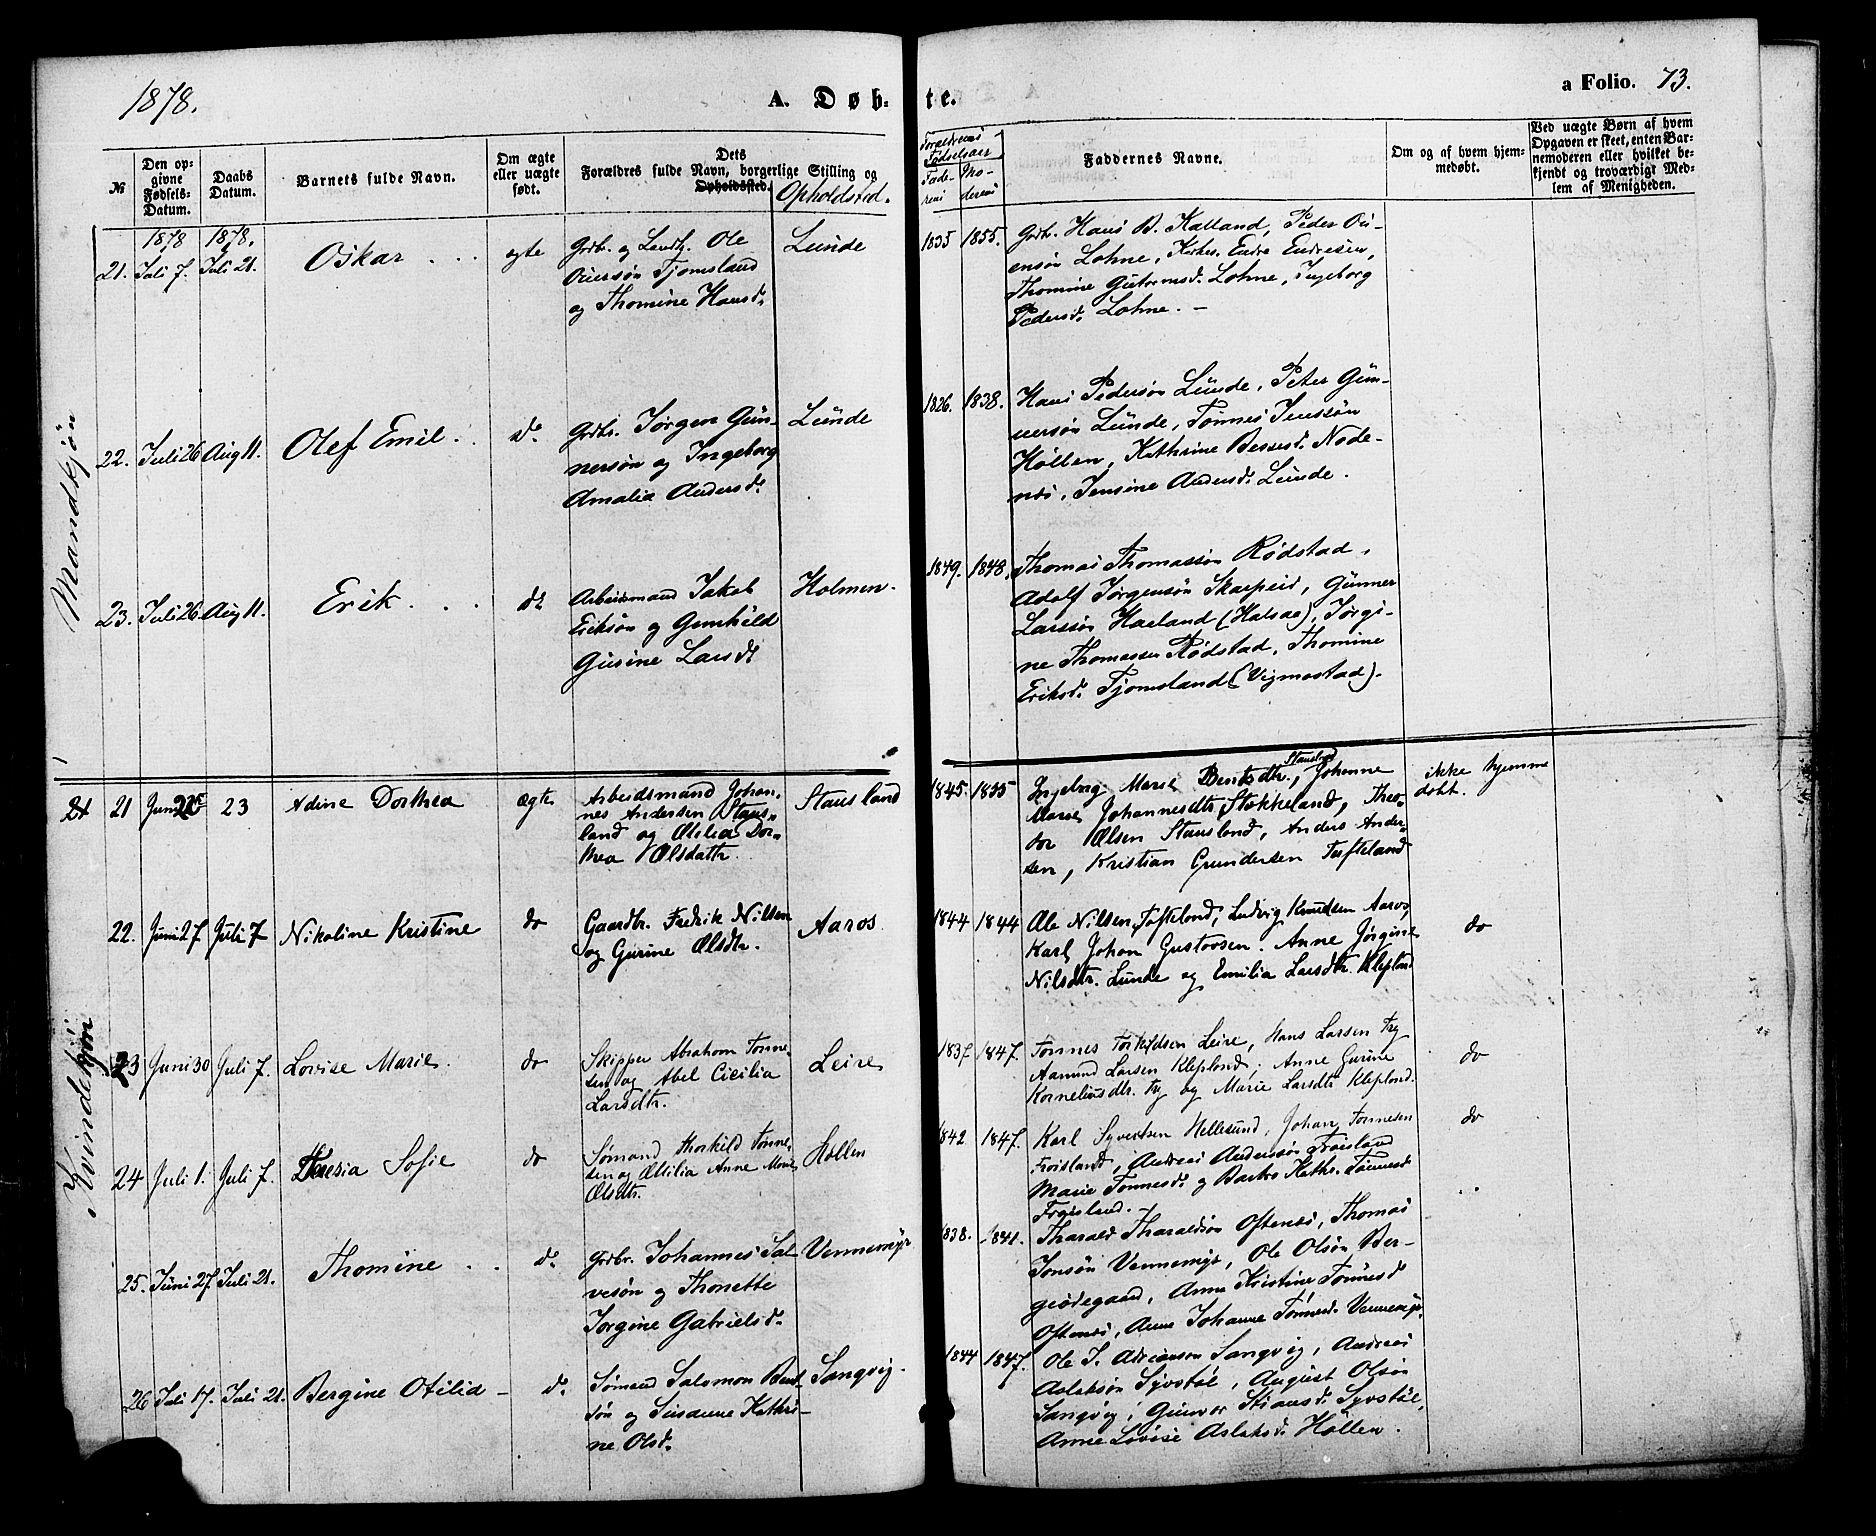 1878.
A. Døb-
te.
a Folio. 73.
№
Den op-
givne
Fødsels-
Datum.
Daabs
Datum.
Barnets fulde Navn.
Om ægte
eller uægte
født.
Dets
Forældres fulde Navn, borgerlige Stilling og
Opholdssted.
Opholdsted.
Forældrenes
Fødselsaar
Fade-
rens
Mo-
derens
Faddernes Navne.
Om og af hvem hjem-
medøbt.
Ved uægte Børn af hvem
Opgaven er skeet, enten Bar-
nemoderen eller hvilket be-
kjendt og troværdigt Med-
lem af Menigheden.
Mandkjøn
1878 1878.
21. Juli 7. Juli 21. Oskar . . . ægte
Grdb. og Landh. Ole
Tjomsland
og Thomine Hansd.
Lunde
1835 1855.
Grdb. Hans B. Kalland, Peder
Lohne, Endre Endresen,
Thomine Lohne, Ingeborg
Pedersd. Lohne. –
22. Juli 26 Aug 11. Olef Emil . . do
Grdbr. Jørgen Gün-
nersøn og Ingeborg
Amalia Andersd.
Lunde
1826. 1838.
Hans Pedersøn Lünde, Peter Gün-
nersøn Lünde, Tønnes Jenssøn
Høllen, Kathrine Node-
næs, Jensine Andersd. Lunde.
23. Juli 26 Aug 11. Erik. . . do
Arbeidsmand Jakob
Eriksøn og Gunhild
Gusine Larsd.
Holmen.
1849. 1848.
Thomas Thomassøn Rødstad,
Adolf Jørgensøn Skarpeid, Günner
Larssøn Haeland (Halsaa), Jørgi-
ne Thomassen Rødstad, Thomine
Eriksd. Tjomsland (Vigmostad).
Kvindekjøn
21 Juni 23 Adine Dorthea ægte
Arbeidsmand Johan-
nes Andersen Staus-
land og Otilia Dor-
thea Olsdattr.
Stausland
1845. 1855
Stausland
Ingeborg Marie Bentsdtr., Johanne
Marie Johannesdtr Stokkeland, Theo-
dor Olsen Stausland, Anders Ander-
sen, Kristian Gundersen Tufteland
ikke hjemme
døbt.
22. Juni 27 Juli 7 Nikoline Kristine do
Gaardbr. Fredrik Nilsen
og Gurine Olsdtr.
Aaros.
1844 1844
Ole Nilsen Tofteland, Ludvig Knudsen Aaros,
Karl Johan Gustavsen. Anne Jørgine
Nilsdtr. Lunde og Emilia Larsdtr. Klepland
do
23 Juni 30 Juli 7. Lovise Marie. do
Skipper Abraham Tønne-
sen og Abel Cicilia
Larsdtr.
Leire
1837 1847.
Tønnes Torkildsen Leire, Hans Larsen Try
Aanund Larsen Klepland, Anne Gurine
Korneliusdtr. Try og Marie Larsdtr Klepland.
do
24 Juli 1. Juli 7. Theresia Sofie do
Sømand Thorkild Tønne-
sen og Otilia Anne Marie
Olsdtr.
Høllen
1842 1847.
Karl Syvertsen Hellesund, Johan Tønnesen
Frøisland, Andreas Andersøn Frøisland
Marie Tønnesd. og Kathr. Tønnesd.
Frøisland. –
do
25. Juni 27. Juli 21. Thomine . . do
Grdbr. Johannes Sal-
vesøn og Thonette
Jørgine Gabrielsd.
Vennemyr
1838. 1841.
Tharald Tharaldsøn Oftenes, Thomas
Jonsøn Vennemyr, Ole Olsøn Ber-
giødegaard, Anna Kristine Tønnesd
Oftenes, Anne Johanne Tønnesd. Vennemyr.
26 Juli 17. Juli 21. Bergine Otilia – do
Sømand Salomon Bent-
søn og Susanne Kathri-
ne Olsd.
Sangvig.
1844 1847.
Ole S. Adriansen Sangvig, Andreas
Aslaksøn Syvstøl, August Olsøn
Sangvig, Gunvor Stiansd. Syvstøl,
Anne Lovise Aslaksd. Høllen.